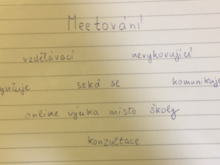 Meetování
vzdělávací nevykovující
seká se komunikuje
online výuka místo školy
konzultace